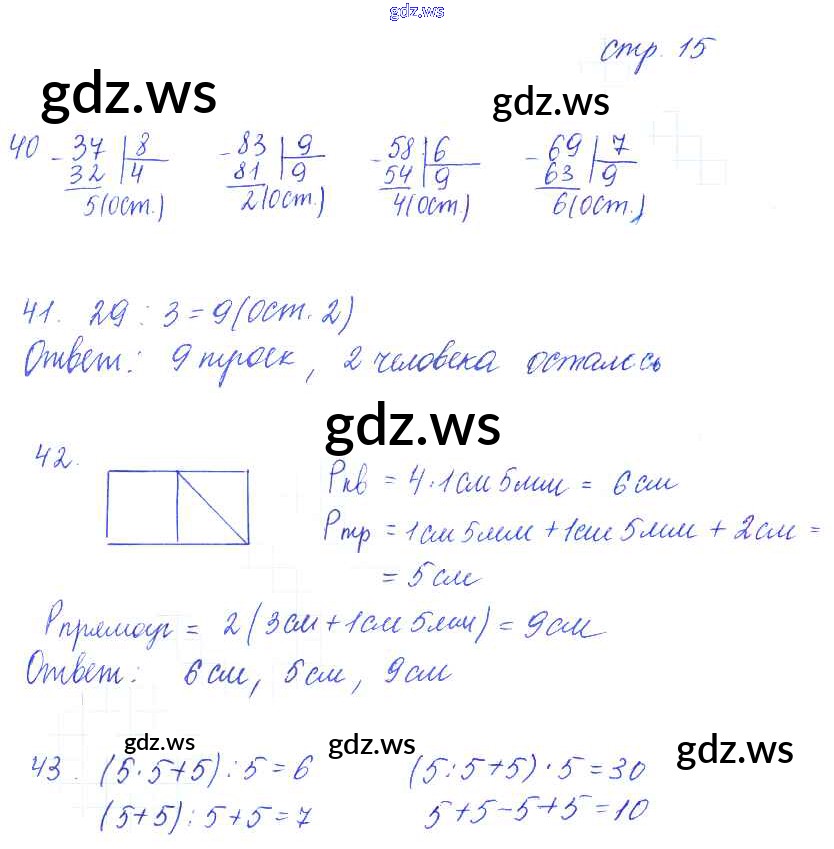 gdz.ws
стр. 15
gdz.ws gdz.ws
40 - 37 | 8 - 83 | 9 - 58 | 6 - 69 | 7
32 | 4 81 | 9 54 | 9 63 | 9
5(ост.) 2(ост.) 4(ост.) 6(ост.)
41. 29 : 3 = 9(ост. 2)
Ответ: 9 троек, 2 человека осталось
gdz.ws
42. Pкв = 4 · 1см 5мм = 6см
Pтр = 1см 5мм + 1см 5мм + 2см =
= 5см
Pпрямоуг = 2(3см + 1см 5мм) = 9см
Ответ: 6см, 5см, 9см
gdz.ws gdz.ws gdz.ws
43. (5·5+5):5=6 (5:5+5)·5=30
(5+5):5+5=7 5+5-5+5=10